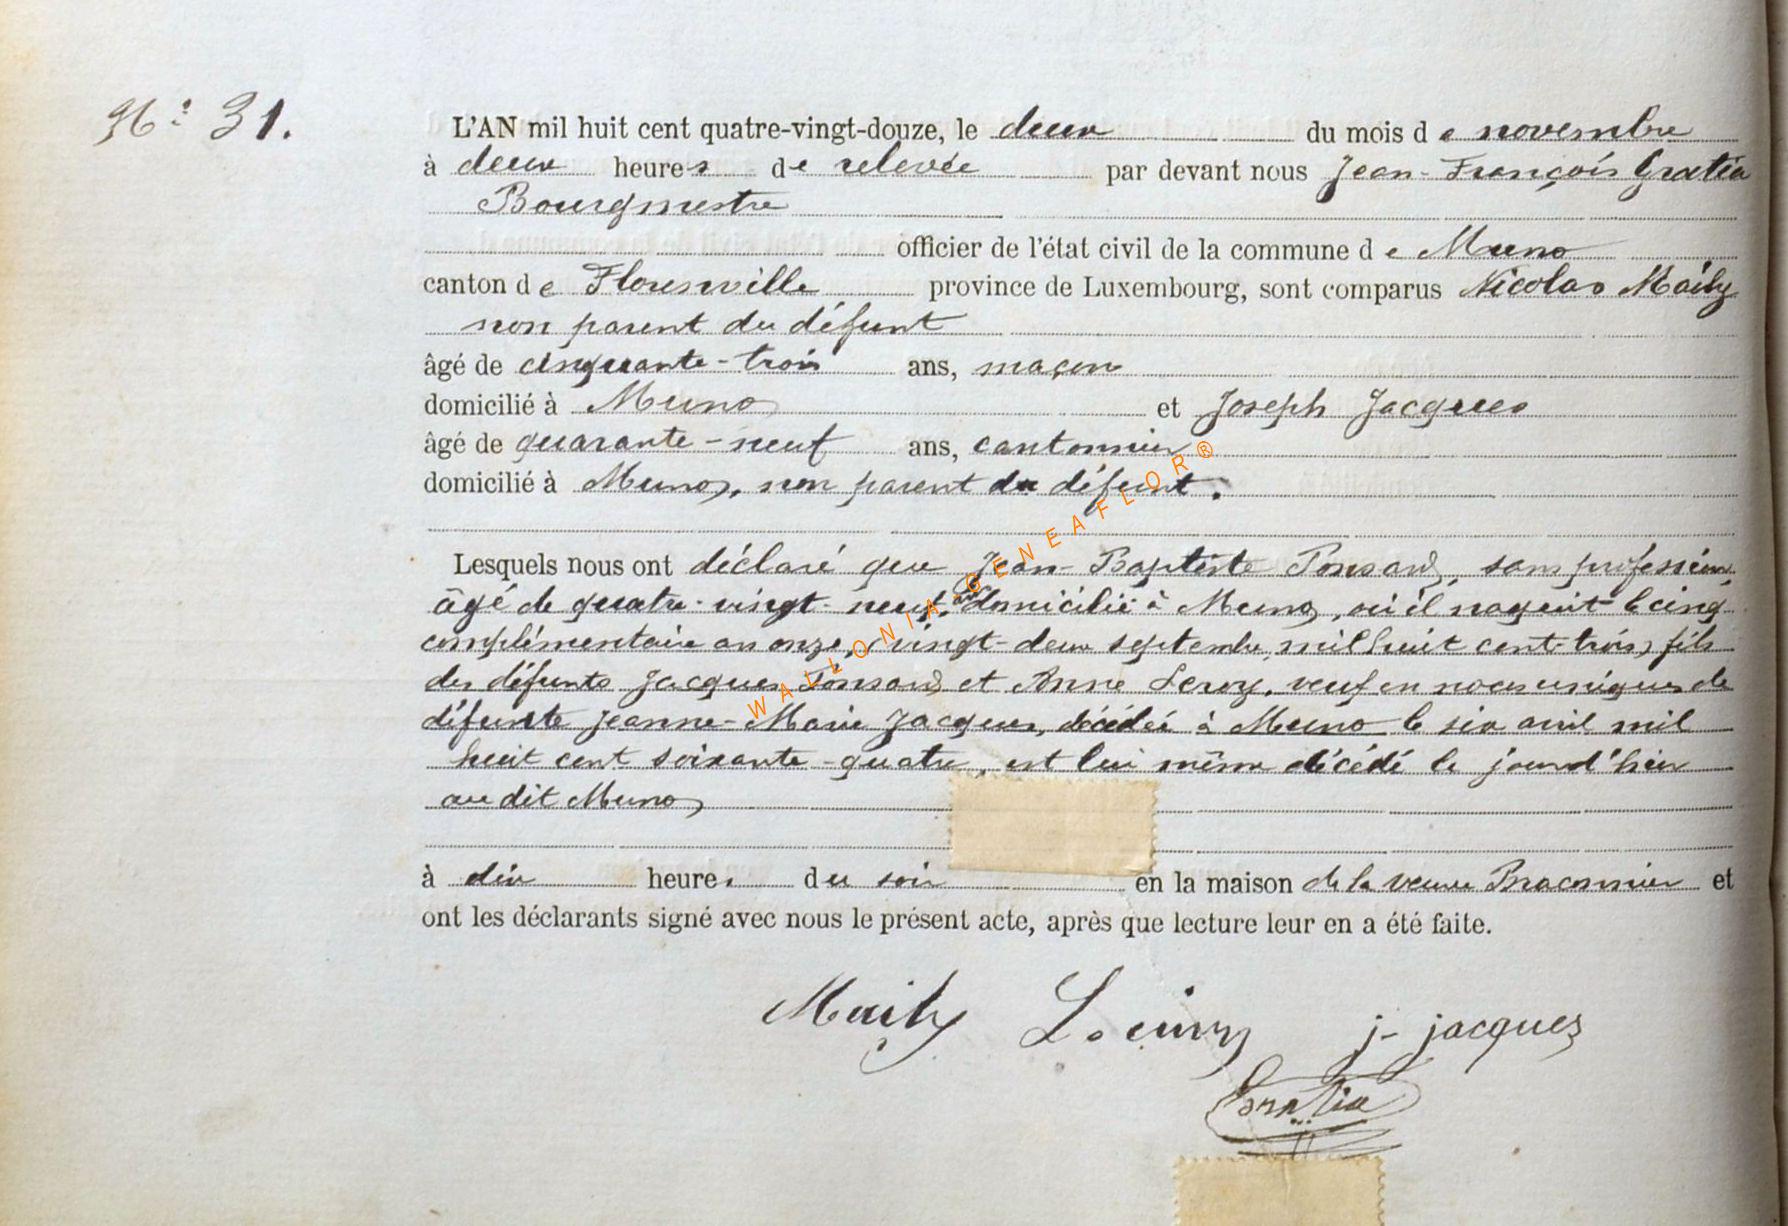 N° 31.
L'AN mil huit cent quatre-vingt-douze, le deux du mois de novembre
à deux heures de relevée par devant nous Jean-François Gratia
Bourgmestre
officier de l'état civil de la commune de Muno
canton de Florenville province de Luxembourg, sont comparus Nicolas Maily
non parent du défunt
âgé de cinquante-trois ans, maçon
domicilié à Muno et Joseph Jacques
âgé de quarante-neuf ans, cantonnier
domicilié à Muno, non parent du défunt.
Lesquels nous ont déclaré que Jean-Baptiste Ponsard, sans profession,
âgé de quatre-vingt-neuf ans domicilié à Muno, où il naquit le cinq
complémentaire an onze, (vingt-deux septembre mil huit cent-trois) fils
des défunts Jacques Ponsard et Anne Leroy, veuf en noces uniques de
défunte Jeanne-Marie Jacques, décédée à Muno le six avril mil
huit cent soixante-quatre, est lui même décédé le jour d'hier
au dit Muno
à dix heures du soir en la maison de la veuve Braconnier et
ont les déclarants signé avec nous le présent acte, après que lecture leur en a été faite.
Maily j- jacques
Gratia
WALLONIA-GENEAFLOR®